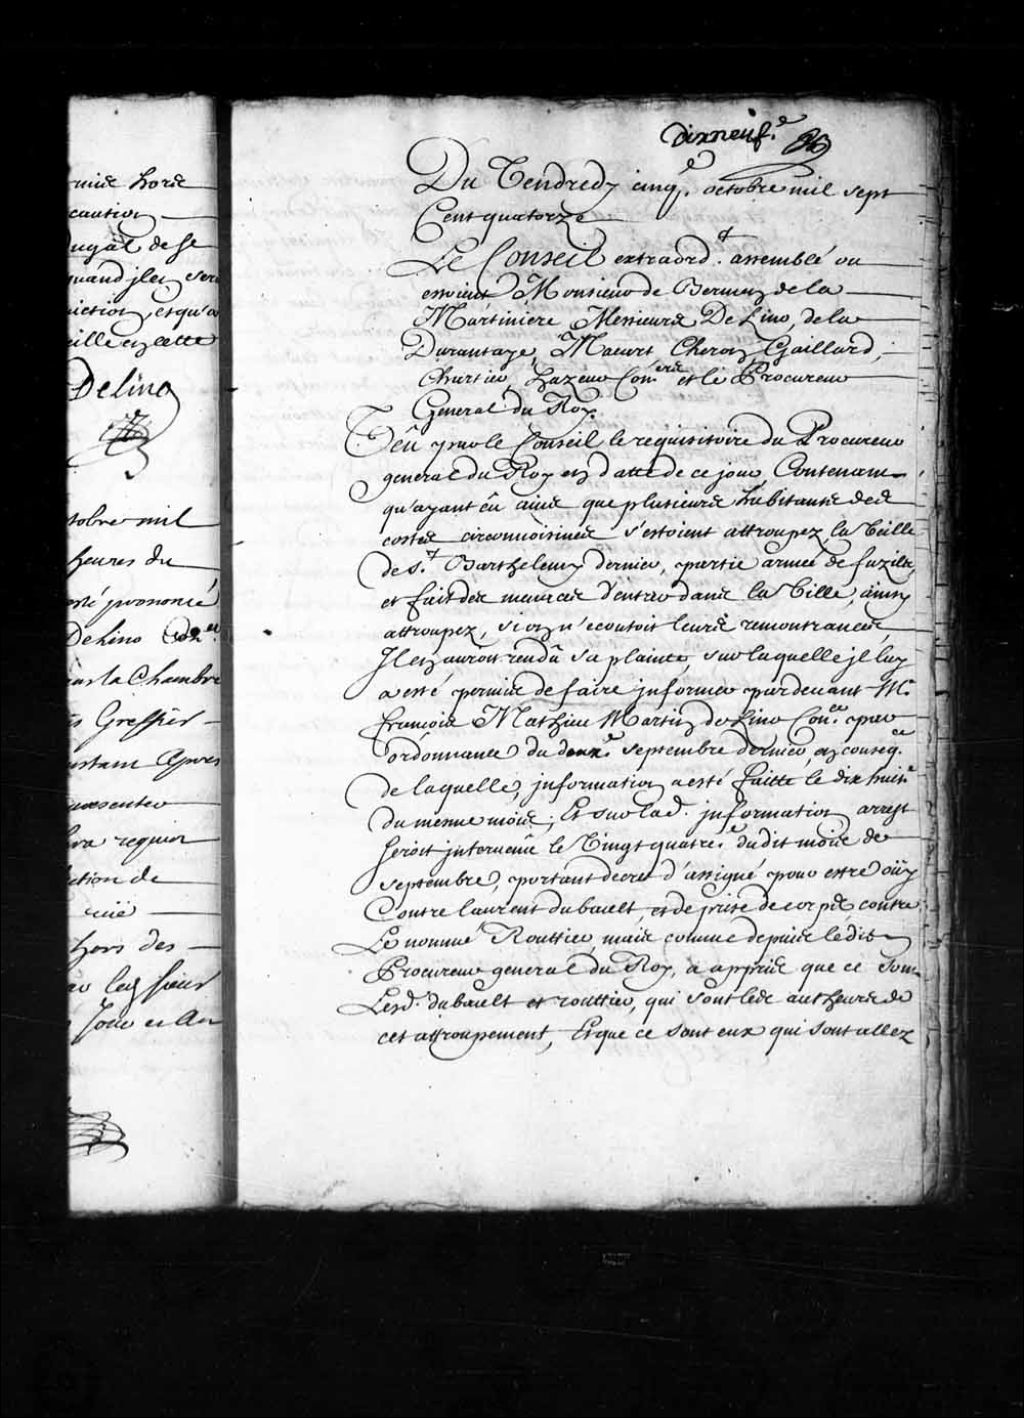 mis hors
caution
ugal de se
quand jls ser
iction, et qu'a
eille en cette
Delino
tobre mil
heures du
esté prononcé
Delino Con.er
ans la Chambre
is Greffier
instant Apres
presenter
ra requis
ction de
hors des
dixneuf.e
Du Vendredy cinq.e octobre mil sept
Cent quatorze
Le Conseil extraord.t assemblé ou
estoient Monsieur de Bermen de la
Martiniere Messieurs De Lino, de la
Durantaye, Macart Cheron, Gaillard,
Chartier, hazeur Con.ers et le Procureur
General du Roy.
Veû par le Conseil le requisitoire du Procureur
general du Roy en datte de ce jour Contenant
qu'ayant eû avis que plusieurs habitants des
costes circonvoisines s'estoient attroupez la Veille
de S.t Barthelemy dernier, partie armée de fuzils,
et fait des menaces d'entrer dans la Ville, ainsy
attroupez, si on n'ecoutoit leurs remontrances,
Jl en auroit rendu sa plainte, sur laquelle jl luy
a esté permis de faire jnformer pardevant M.e
françois Mathieu Martin de Lino Con.er par
ordonnance du deux.e septembre dernier, en conseq.ce
de laquelle, jnformation a esté faitte le dix huit.e
du mesme mois; Et sur lad. jnformation arrest
seroit jntervenû le Vingt quatre.e du dit mois de
septembre, portant decret d'assigné pour estre oüy
Contre laurent dubault, et de prise de corps contre
Le nommé Routtier, mais comme depuis le dit
Procureur general du Roy, a appris que ce sont
Lesd. dubault et routtier, qui sont les autheurs de
cet attroupement, Et que ce sont eux qui sont allez